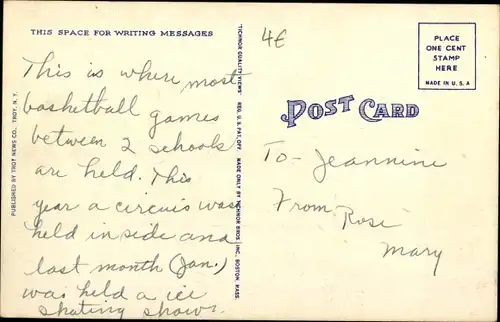 THIS SPACE FOR WRITING MESSAGES
This is where most
basketball games
between 2 schools
are held. This
year a circuis was
held in side and
last month (Jan.)
was held a ice
skating show.
PUBLISHED BY TROY NEWS CO., TROY, N.Y.
"TICHNOR QUALITY VIEWS" REG. U. S. PAT. OFF. MADE ONLY BY TICHNOR BROS., INC., BOSTON, MASS.
4€
PLACE
ONE CENT
STAMP
HERE
MADE IN U.S.A
POST CARD
To- Jeannine
From Rose
Mary